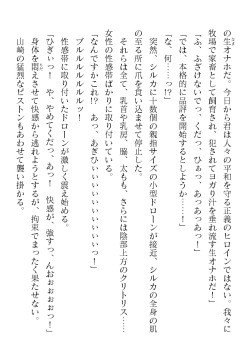 の生オナホだ。今日から君は人々の平和を守る正義のヒロインではない。我々に
牧場で家畜として飼育され、犯されてヨガり汁を垂れ流す生オナホだ！」
「ふ、ふざけないでっ、ひぁっ、あっあっあっ！」
「では、本格的に品評を開始するとしようか……！」
「な、何……っ？」
突然、シルカに十数個の親指サイズの小型ドローンが接近。シルカの全身の肌
の至る所に爪を食い込ませて停止した。
それらは全て、乳首や乳房、脇、太もも、さらには陰部上方のクリトリス……
女性の性感帯ばかりに取り付いている。
「なんですかこれ!?　あっ、あぎひぃいぃぃぃぃぃぃぃっ！」
ブルルルルルルルッ！
性感帯に取り付いたドローンが激しく震え始める。
「ひぎぃっ！　や、やめてくだっ、あっ！　快感が、強すっ、んおぉぉぉぉっ！」
身体を悶えさせて快感から逃れようとするが、拘束でまったく果たせない。
山崎の猛烈なピストンもあわせて襲い掛かる。